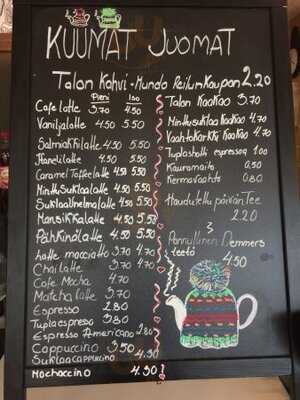 KUUMAT JUOMAT
Talon Kahvi - Mundo Reilun Kaupan 2.20
Pieni Iso
Cafe latte 3.70 4.50
Vaniljalatte 4.50 5.50
Salmiakkilatte 4.50 5.50
Kanelilatte 4.50 5.50
Caramel Toffee latte 4.50 5.50
Minttusuklaalatte 4.50 5.50
Suklaaunelmalatte 4.50 5.50
Mansikkalatte 4.50 5.50
Pähkinälatte 4.50 5.50
latte macciatto 3.70 4.70
Chai latte 3.70 4.70
Cafe Mocha 4.70
Matcha latte 3.70
Espresso 2.80
Tuplaespresso 3.80
Espresso Americano 2.80
Cappuccino 3.50
Suklaacappuccino 4.50
Mochaccino 4.50
Talon Kaakao 3.70
Minttusuklaa Kaakao 4.70
Vaahtokarkki Kaakao 4.70
Tuplashotti espressoa 1.00
Kauramaito 0.50
Kermavaahto 0.80
Haudutettu päivän Tee
2.20
Pannullinen Demmers
teetä 4.50